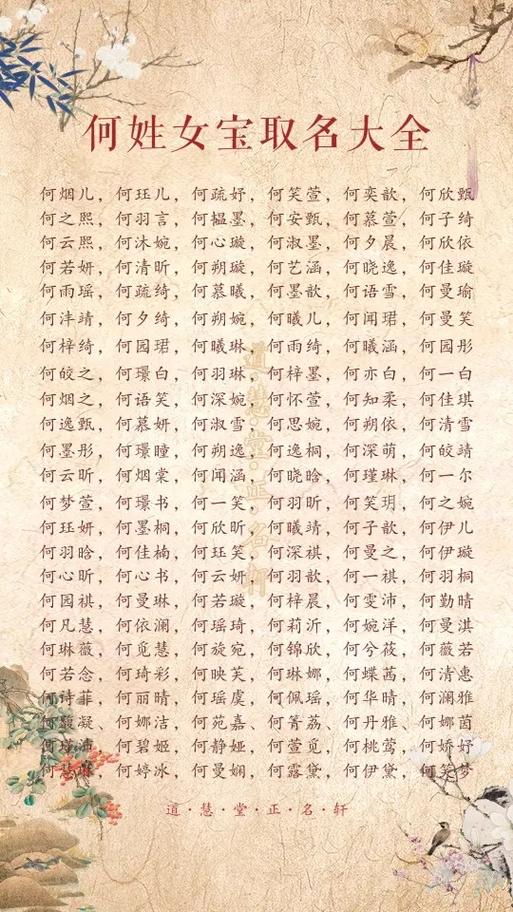 何姓女宝取名大全
何烟儿，何珏儿，何疏妤，何笑萱，何奕歆，何欣甄
何之熙，何羽言，何韫墨，何安甄，何慕萱，何子绮
何云熙，何沐婉，何心璇，何淑墨，何夕晨，何欣依
何若妍，何清昕，何朔璇，何艺涵，何晓逸，何佳璇
何雨瑶，何疏绮，何慕曦，何墨歆，何语雪，何曼瑜
何沣靖，何夕绮，何朔婉，何曦儿，何闻珺，何曼笑
何梓绮，何园珺，何曦琳，何雨绮，何曦涵，何园彤
何皎之，何璟白，何羽琳，何梓墨，何亦白，何一白
何烟之，何语笑，何深婉，何怀萱，何知柔，何佳琪
何逸甄，何慕妍，何淑雪，何思婉，何朔依，何清雪
何墨彤，何璟曈，何朔逸，何逸桐，何深萌，何皎靖
何云昕，何烟棠，何闻涵，何晓晗，何瑾琳，何一尔
何梦萱，何璟书，何一笑，何羽昕，何笑玥，何之婉
何珏妍，何墨桐，何欣昕，何曦靖，何子歆，何伊儿
何羽晗，何佳楠，何珏笑，何深祺，何曼之，何伊璇
何心昕，何心书，何云妍，何羽歆，何一祺，何羽桐
何园祺，何曼琳，何若璇，何梓晨，何雯沛，何勤晴
何凡慧，何依澜，何瑶琦，何莉沂，何婉洋，何曼淇
何琳薇，何觅慧，何旋宛，何锦欣，何兮筱，何薇若
何若念，何琦彩，何映芙，何琳娜，何蝶茜，何清惠
何诗菲，何丽晴，何瑶虞，何佩瑶，何华晴，何澜雅
何凝，何娜洁，何苑嘉、何箐荔、何丹雅，何娜茵
何沛，何碧姬，何静娅，何萱觅，何桃莺，何娇妤
何，何婷冰，何曼娴，何露黛，何伊黛，何笑梦
道·慧·堂·正·名·轩
道·慧·堂·正·名·轩